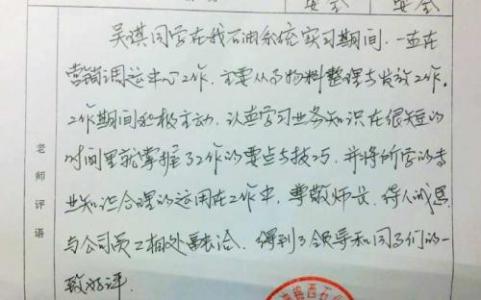 安全
安全
老师评语
吴琪同学在我石油系统实习期间，一直在
营销调运中心工作，主要从事物料整理与发放工作。
工作期间积极主动，认真学习业务知识在很短的
时间里就掌握了工作的要点与技巧，并将所学的专
业知识合理的运用在工作中，尊敬师长，待人诚恳
与公司员工相处融洽，得到了领导和同事们的一
致好评.
西石